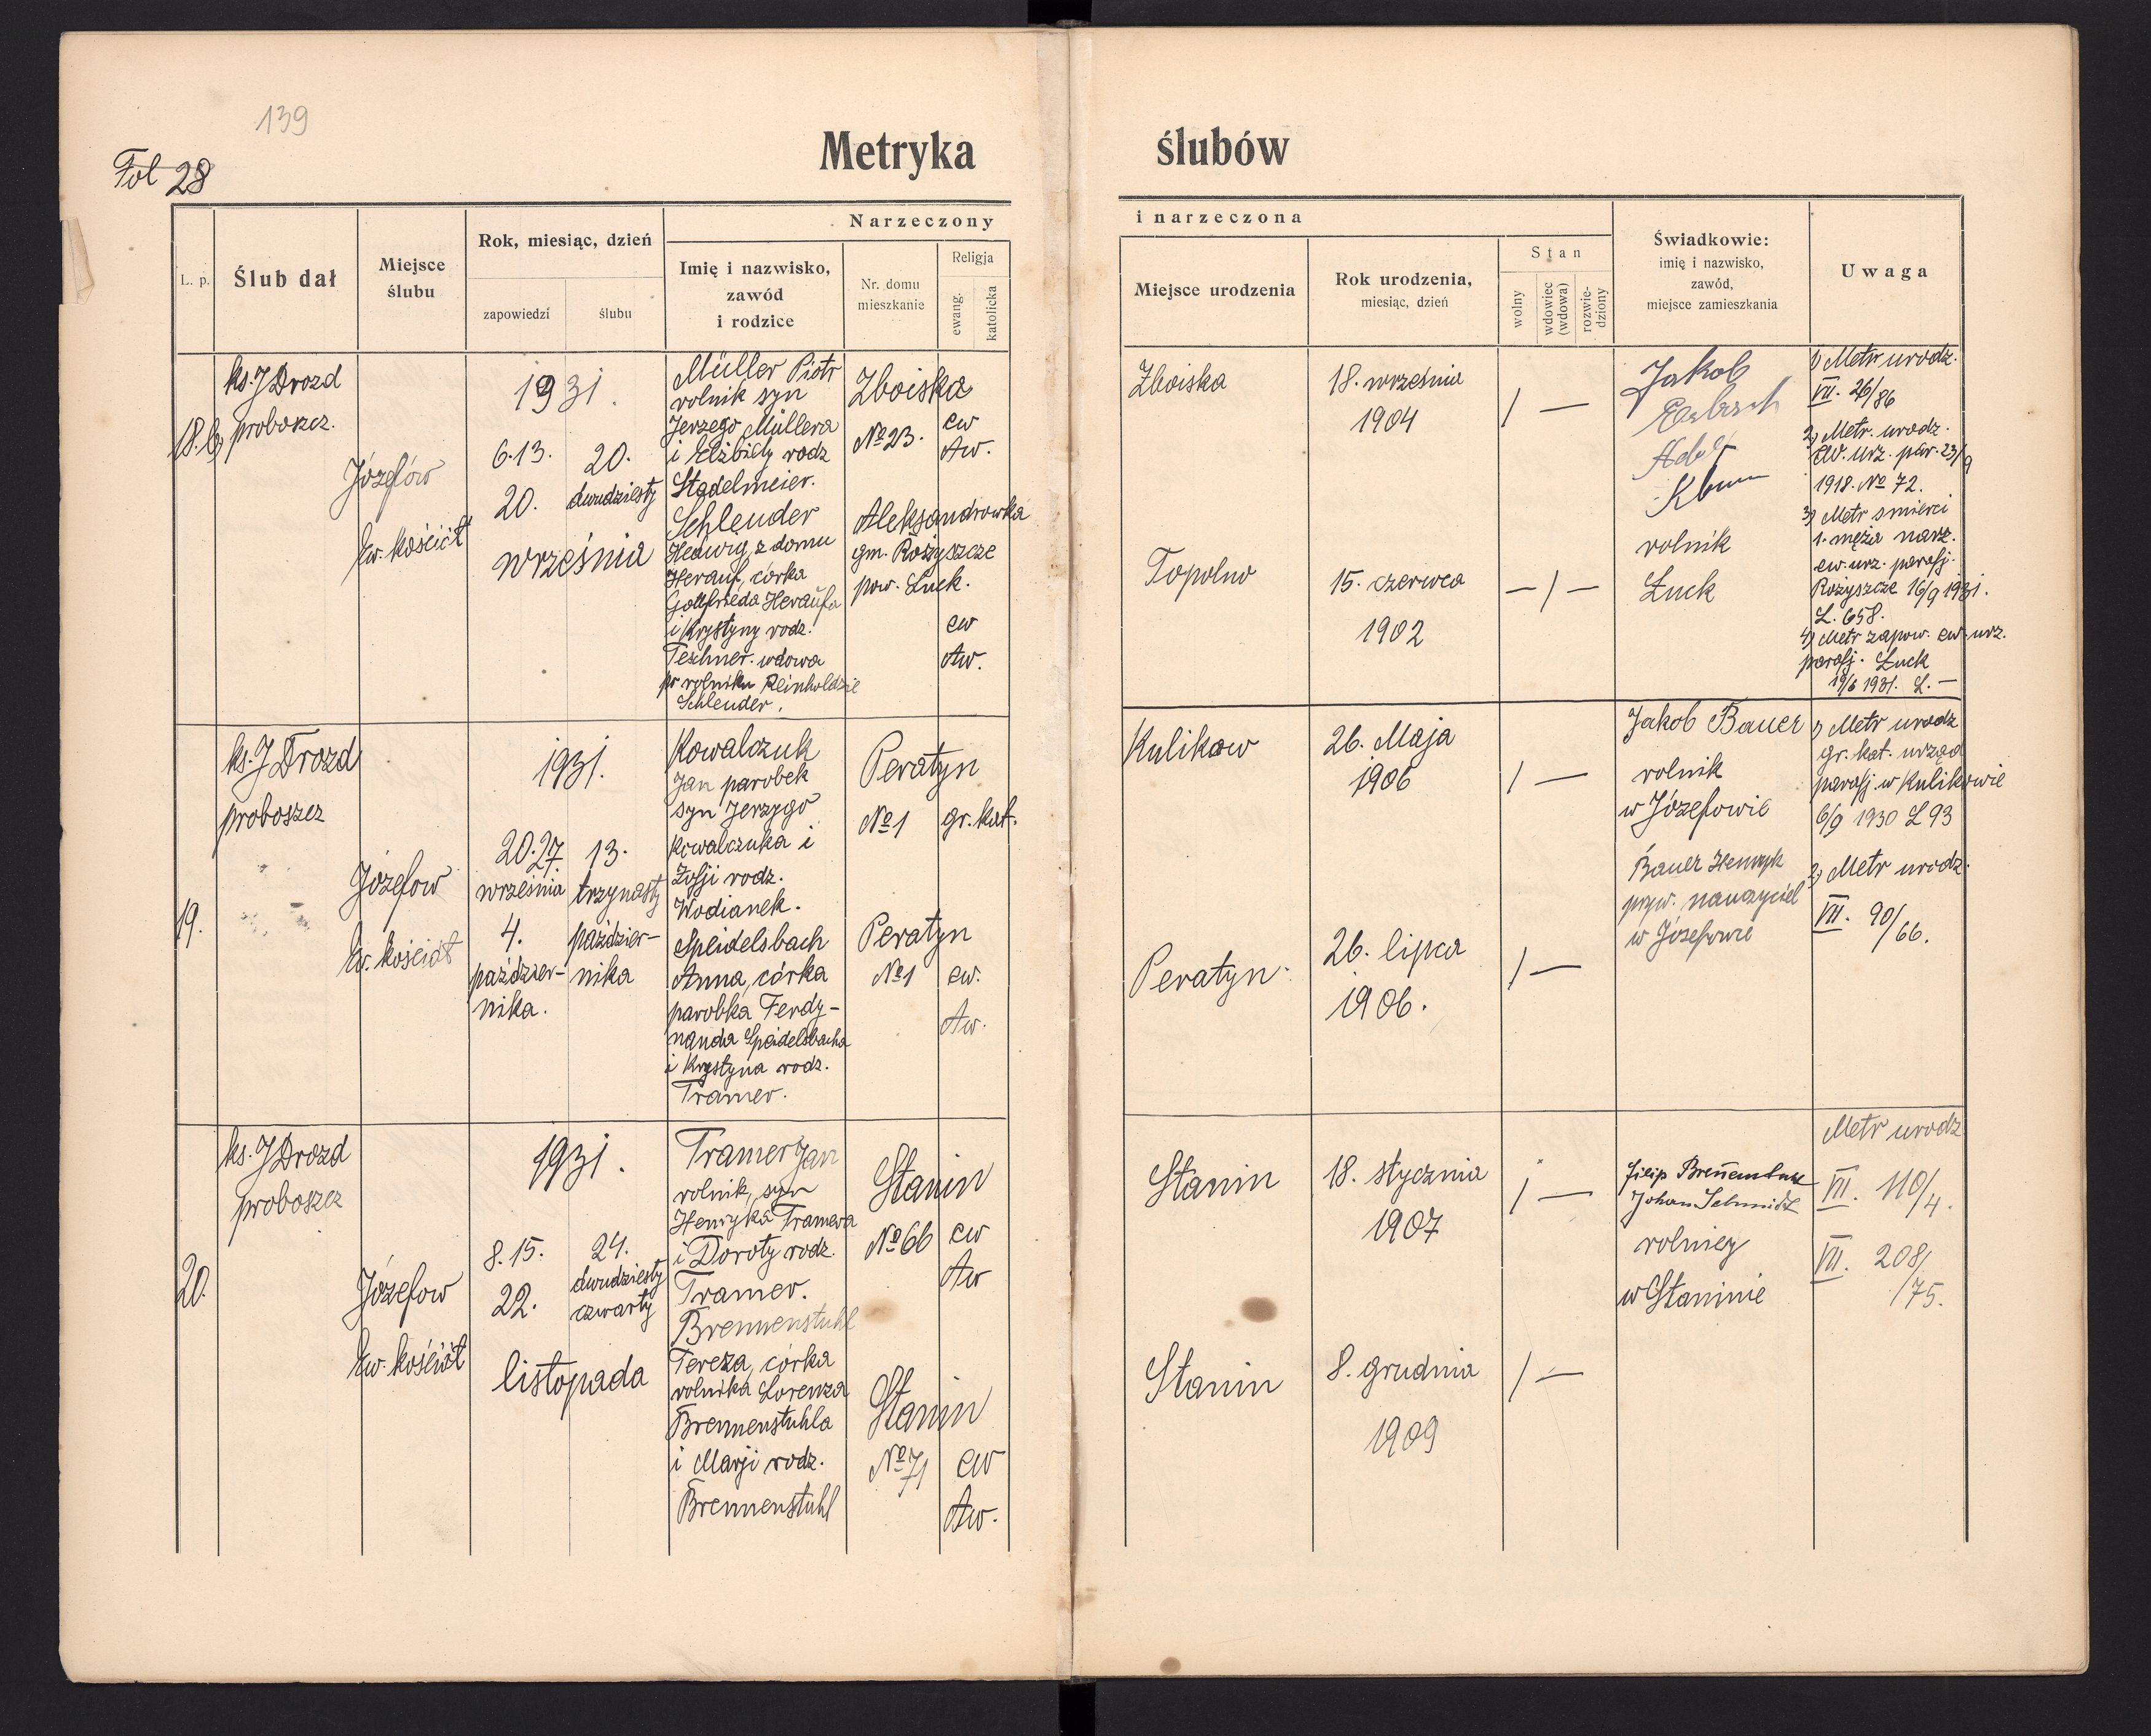 139
Fol 28
Metryka ślubów
L. p.
Ślub dał
Miejsce
ślubu
Rok, miesiąc, dzień
zapowiedzi
ślubu
Narzeczony
Imię i nazwisko,
zawód
i rodzice
Nr. domu
mieszkanie
Religja
ewang.
katolicka
i narzeczona
Miejsce urodzenia
Rok urodzenia,
miesiąc, dzień
Stan
wolny
wdowiec
(wdowa)
rozwie-
dziony
Świadkowie:
imię i nazwisko,
zawód,
miejsce zamieszkania
Uwaga
18.
ks. J Drozd
proboszcz.
Józefów
Ew. kościół
1931.
6.13.
20.
września
20.
dwudziesty
Müller Piotr
rolnik syn
Jerzego Müllera
i Elżbiety rodz
Stadelmeier.
Schleuder
Hedwig, z domu
Herauf, córka
Gottfrieda Heraufa
i Krystyny rodz.
Teschner. wdowa
po rolniku Reinholdzie
Schleuder.
Zboiska
№ 23.
ew
Aw.
Aleksandrowka
gm. Rożyszcze
pow. Łuck.
ew
Aw.
Zboiska
18. września
1904
/ —
Topolno
15. czerwca
1902
— / —
Jakob
Adolf
rolnik
Łuck
1) Metr urodz.
VII. 26/86
2) Metr. urodz.
ew. urz. par. 23/9
1918. № 72.
3) Metr śmierci
1. męża narz.
ew. urz. parafj.
Rożyszcze 16/9 1931.
L. 658.
4) Metr zapow. ew. urz.
parafj. Łuck
19/6 1931. L. —
19.
ks. J Drozd
proboszcz
Józefow
Ew. kościół
1931.
20.27.
września
4.
paździer-
nika.
13.
trzynasty
paździer-
nika
Kowalczuk
Jan parobek
syn Jerzygo
Kowalczuka i
Zofji rodz.
Wodianek.
Speidelsbach
Anna, córka
parobka Ferdy-
nanda Speidelsbacha
i Krystyna rodz.
Tramer.
Peratyn
№ 1
gr. kat.
Peratyn
№ 1
ew.
Aw.
Kulikow
26. Maja
1906
/ —
Peratyn.
26. lipca
1906.
/ —
Jakob Bauer
rolnik
w Józefowie
Bauer Henryk
pryw. nauczyciel
w Józefowie
1) Metr urodz
gr. kat. urząd
parafj. w Kulikowie
6/9 1930 L 93
2) Metr urodz.
VII. 90/66.
20.
ks. J Drozd
proboszcz
Józefow
Ew. kościół
1931.
8.15.
22.
24.
dwudziesty
czwarty
listopada
Tramer Jan
rolnik, syn
Henryka Tramera
i Doroty rodz.
Tramer.
Brennenstuhl
Tereza, córka
rolnika Lorenza
Brennenstuhla
i Marji rodz.
Brennenstuhl
Stanin
№ 66
ew
Aw
Stanin
№ 71
ew
Aw.
Stanin
18. stycznia
1907
/ —
Stanin
8. grudnia
1909
/ —
Filip
Johan Schmidt
rolnicy
w Staninie
Metr urodz
VII. 110/4.
VII. 208/75.